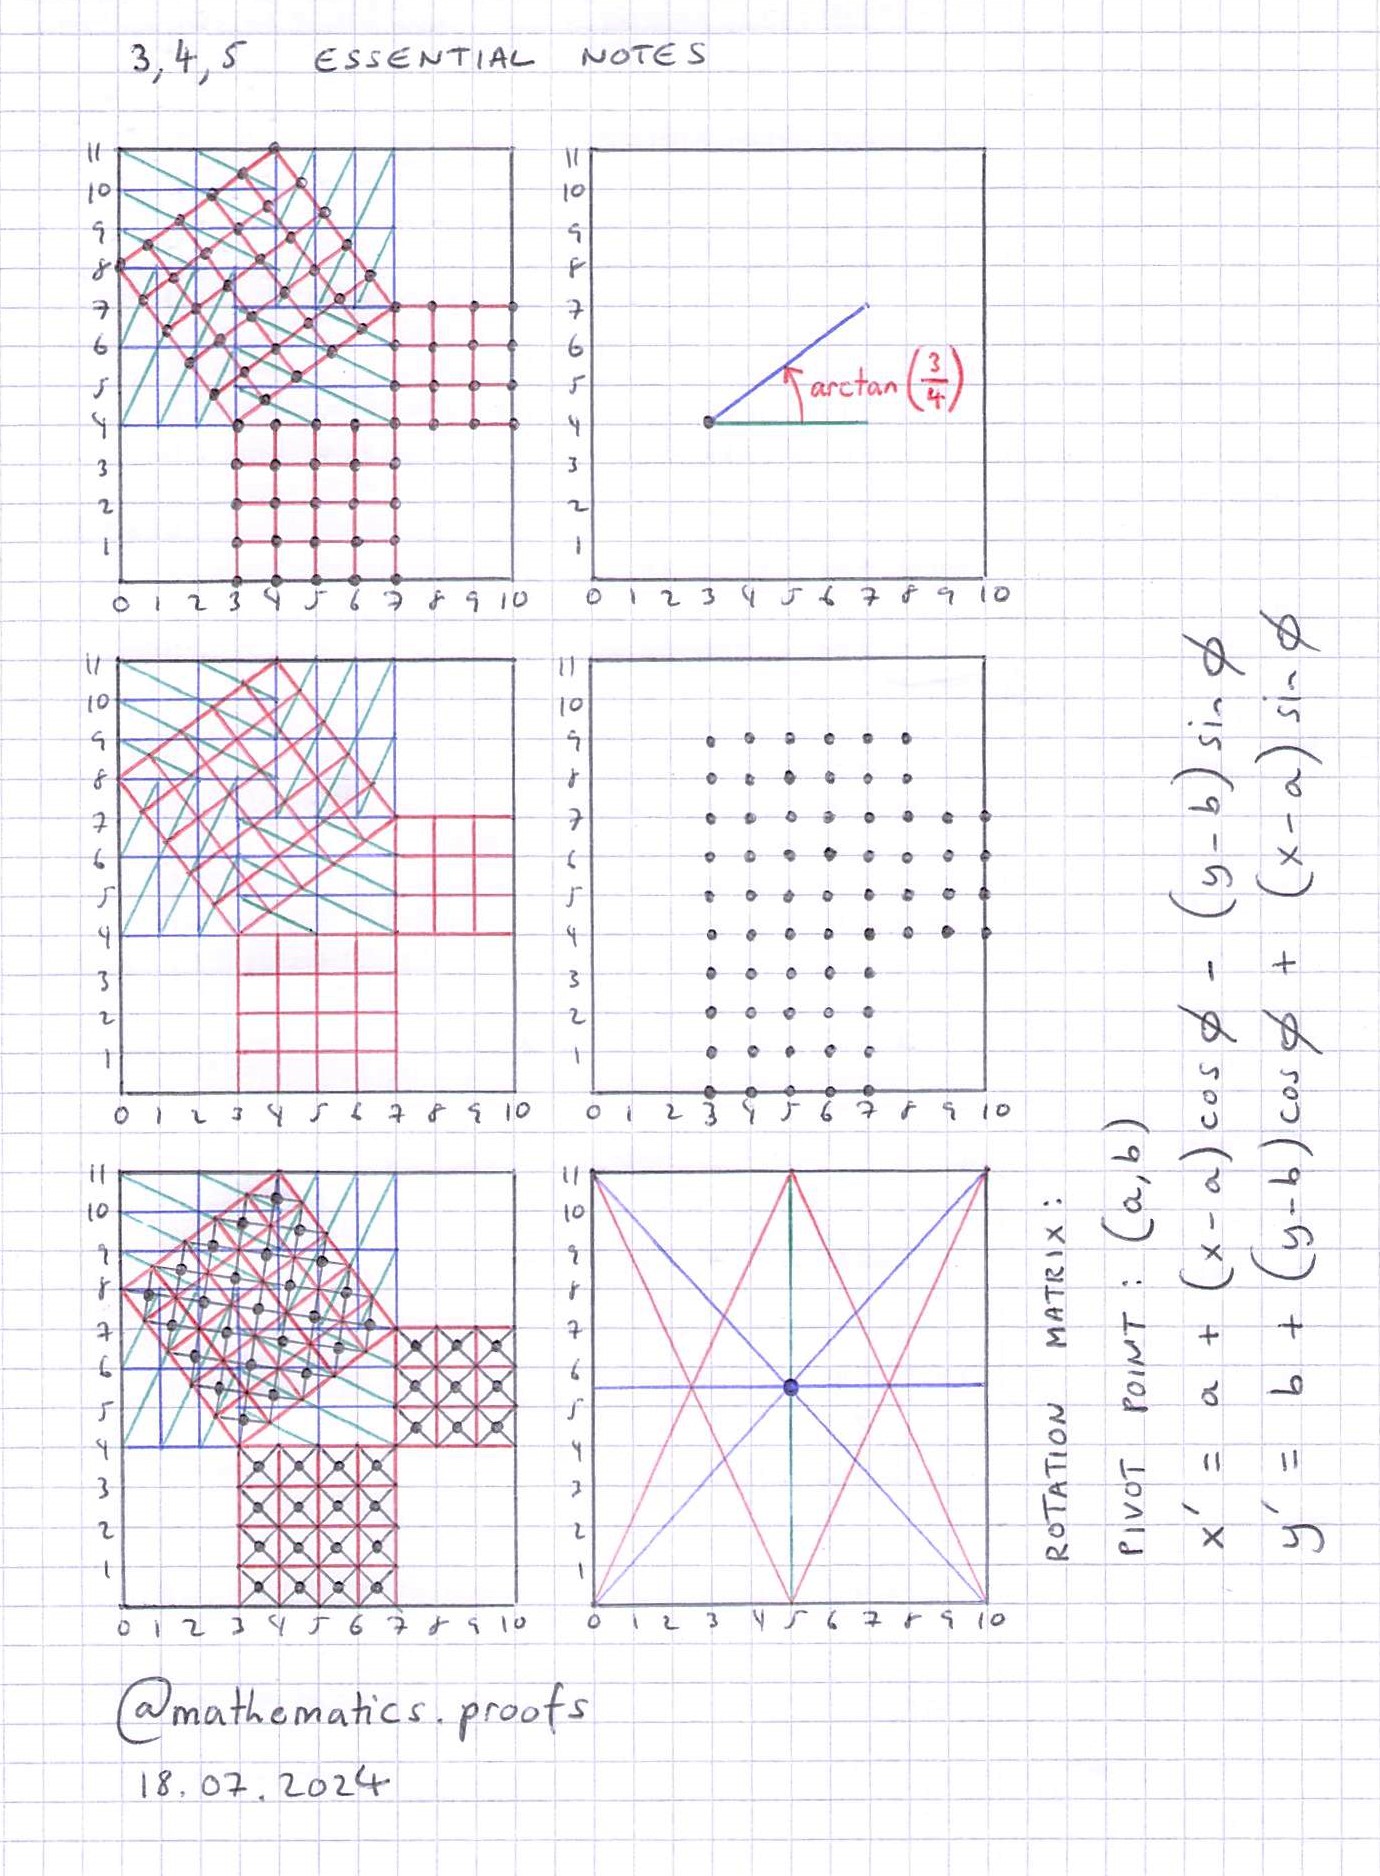 3,4,5 ESSENTIAL NOTES
11
10
9
8
7
6
5
4
3
2
1
0 1 2 3 4 5 6 7 8 9 10
11
10
9
8
7
6
5
4
3
2
1
0 1 2 3 4 5 6 7 8 9 10
arctan (3/4)
11
10
9
8
7
6
5
4
3
2
1
0 1 2 3 4 5 6 7 8 9 10
11
10
9
8
7
6
5
4
3
2
1
0 1 2 3 4 5 6 7 8 9 10
11
10
9
8
7
6
5
4
3
2
1
0 1 2 3 4 5 6 7 8 9 10
11
10
9
8
7
6
5
4
3
2
1
0 1 2 3 4 5 6 7 8 9 10
ROTATION MATRIX:
PIVOT POINT: (a,b)
x' = a + (x-a)cos φ - (y-b)sin φ
y' = b + (y-b)cos φ + (x-a)sin φ
@mathematics.proofs
18.07.2024